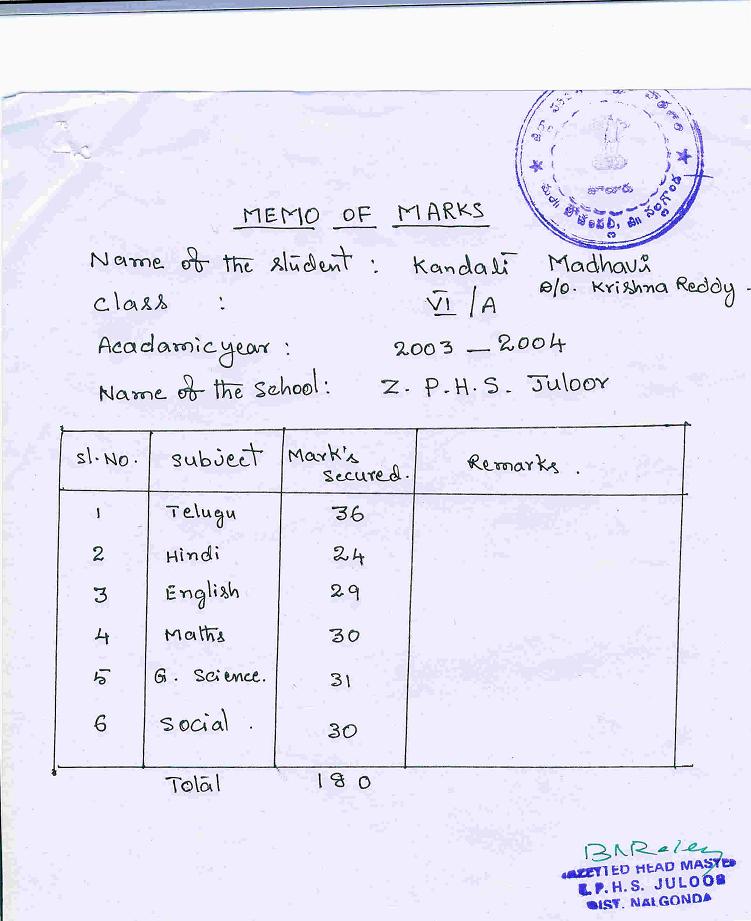 జూలూరు
MEMO OF MARKS
Name of the student : Kandali Madhavi
D/o. Krishna Reddy
Class : VI /A
Acadamic year : 2003 — 2004
Name of the School: Z. P.H.S. Juloor
Sl.No. Subject Mark's Secured. Remarks .
1 Telugu 36
2 Hindi 24
3 English 29
4 Maths 30
5 G. Science. 31
6 Social . 30
Total 180
GAZETTED HEAD MASTER
Z.P.H.S. JULOOR
DIST. NALGONDA